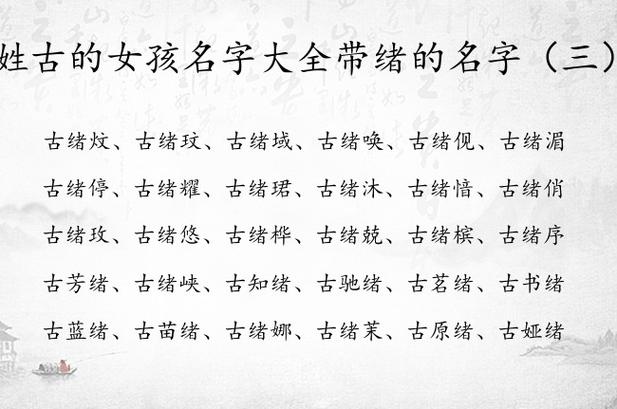 姓古的女孩名字大全带绪的名字（三）
古绪炆、古绪玟、古绪域、古绪唤、古绪倪、古绪湄
古绪停、古绪耀、古绪珺、古绪沐、古绪愔、古绪俏
古绪玫、古绪悠、古绪桦、古绪兢、古绪槟、古绪序
古芳绪、古绪峡、古知绪、古驰绪、古茗绪、古书绪
古蓝绪、古苗绪、古绪娜、古绪茉、古原绪、古娅绪